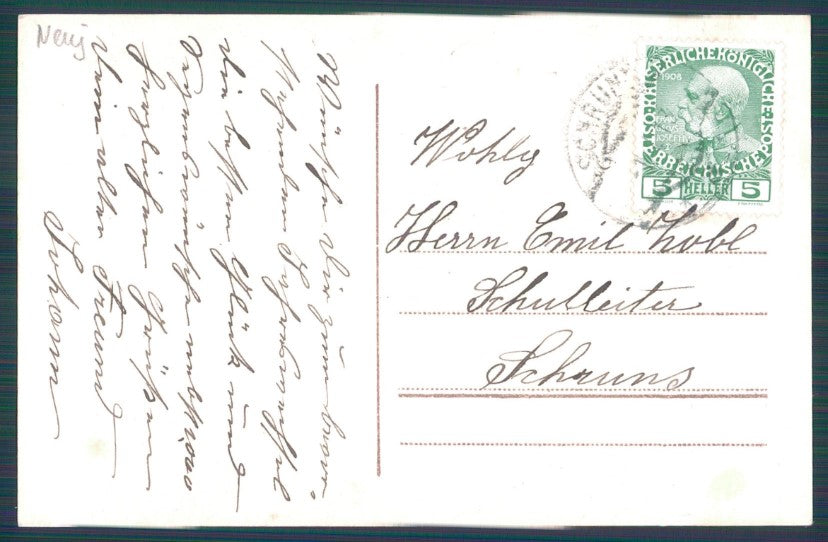 Neuj
Wünsche Dir zum bevor-
stehenden Jahreswechsel
die besten Glück und
Segenswünsche nebst
herzlichen Grüßen
Dein alter Freund
Johann
SCHRUNS
KAISERLICHE KÖNIGLICHE ÖSTERREICHISCHE POST
1908
5 HELLER 5
Wohlg
Herrn Emil Zobl
Schulleiter
Schruns